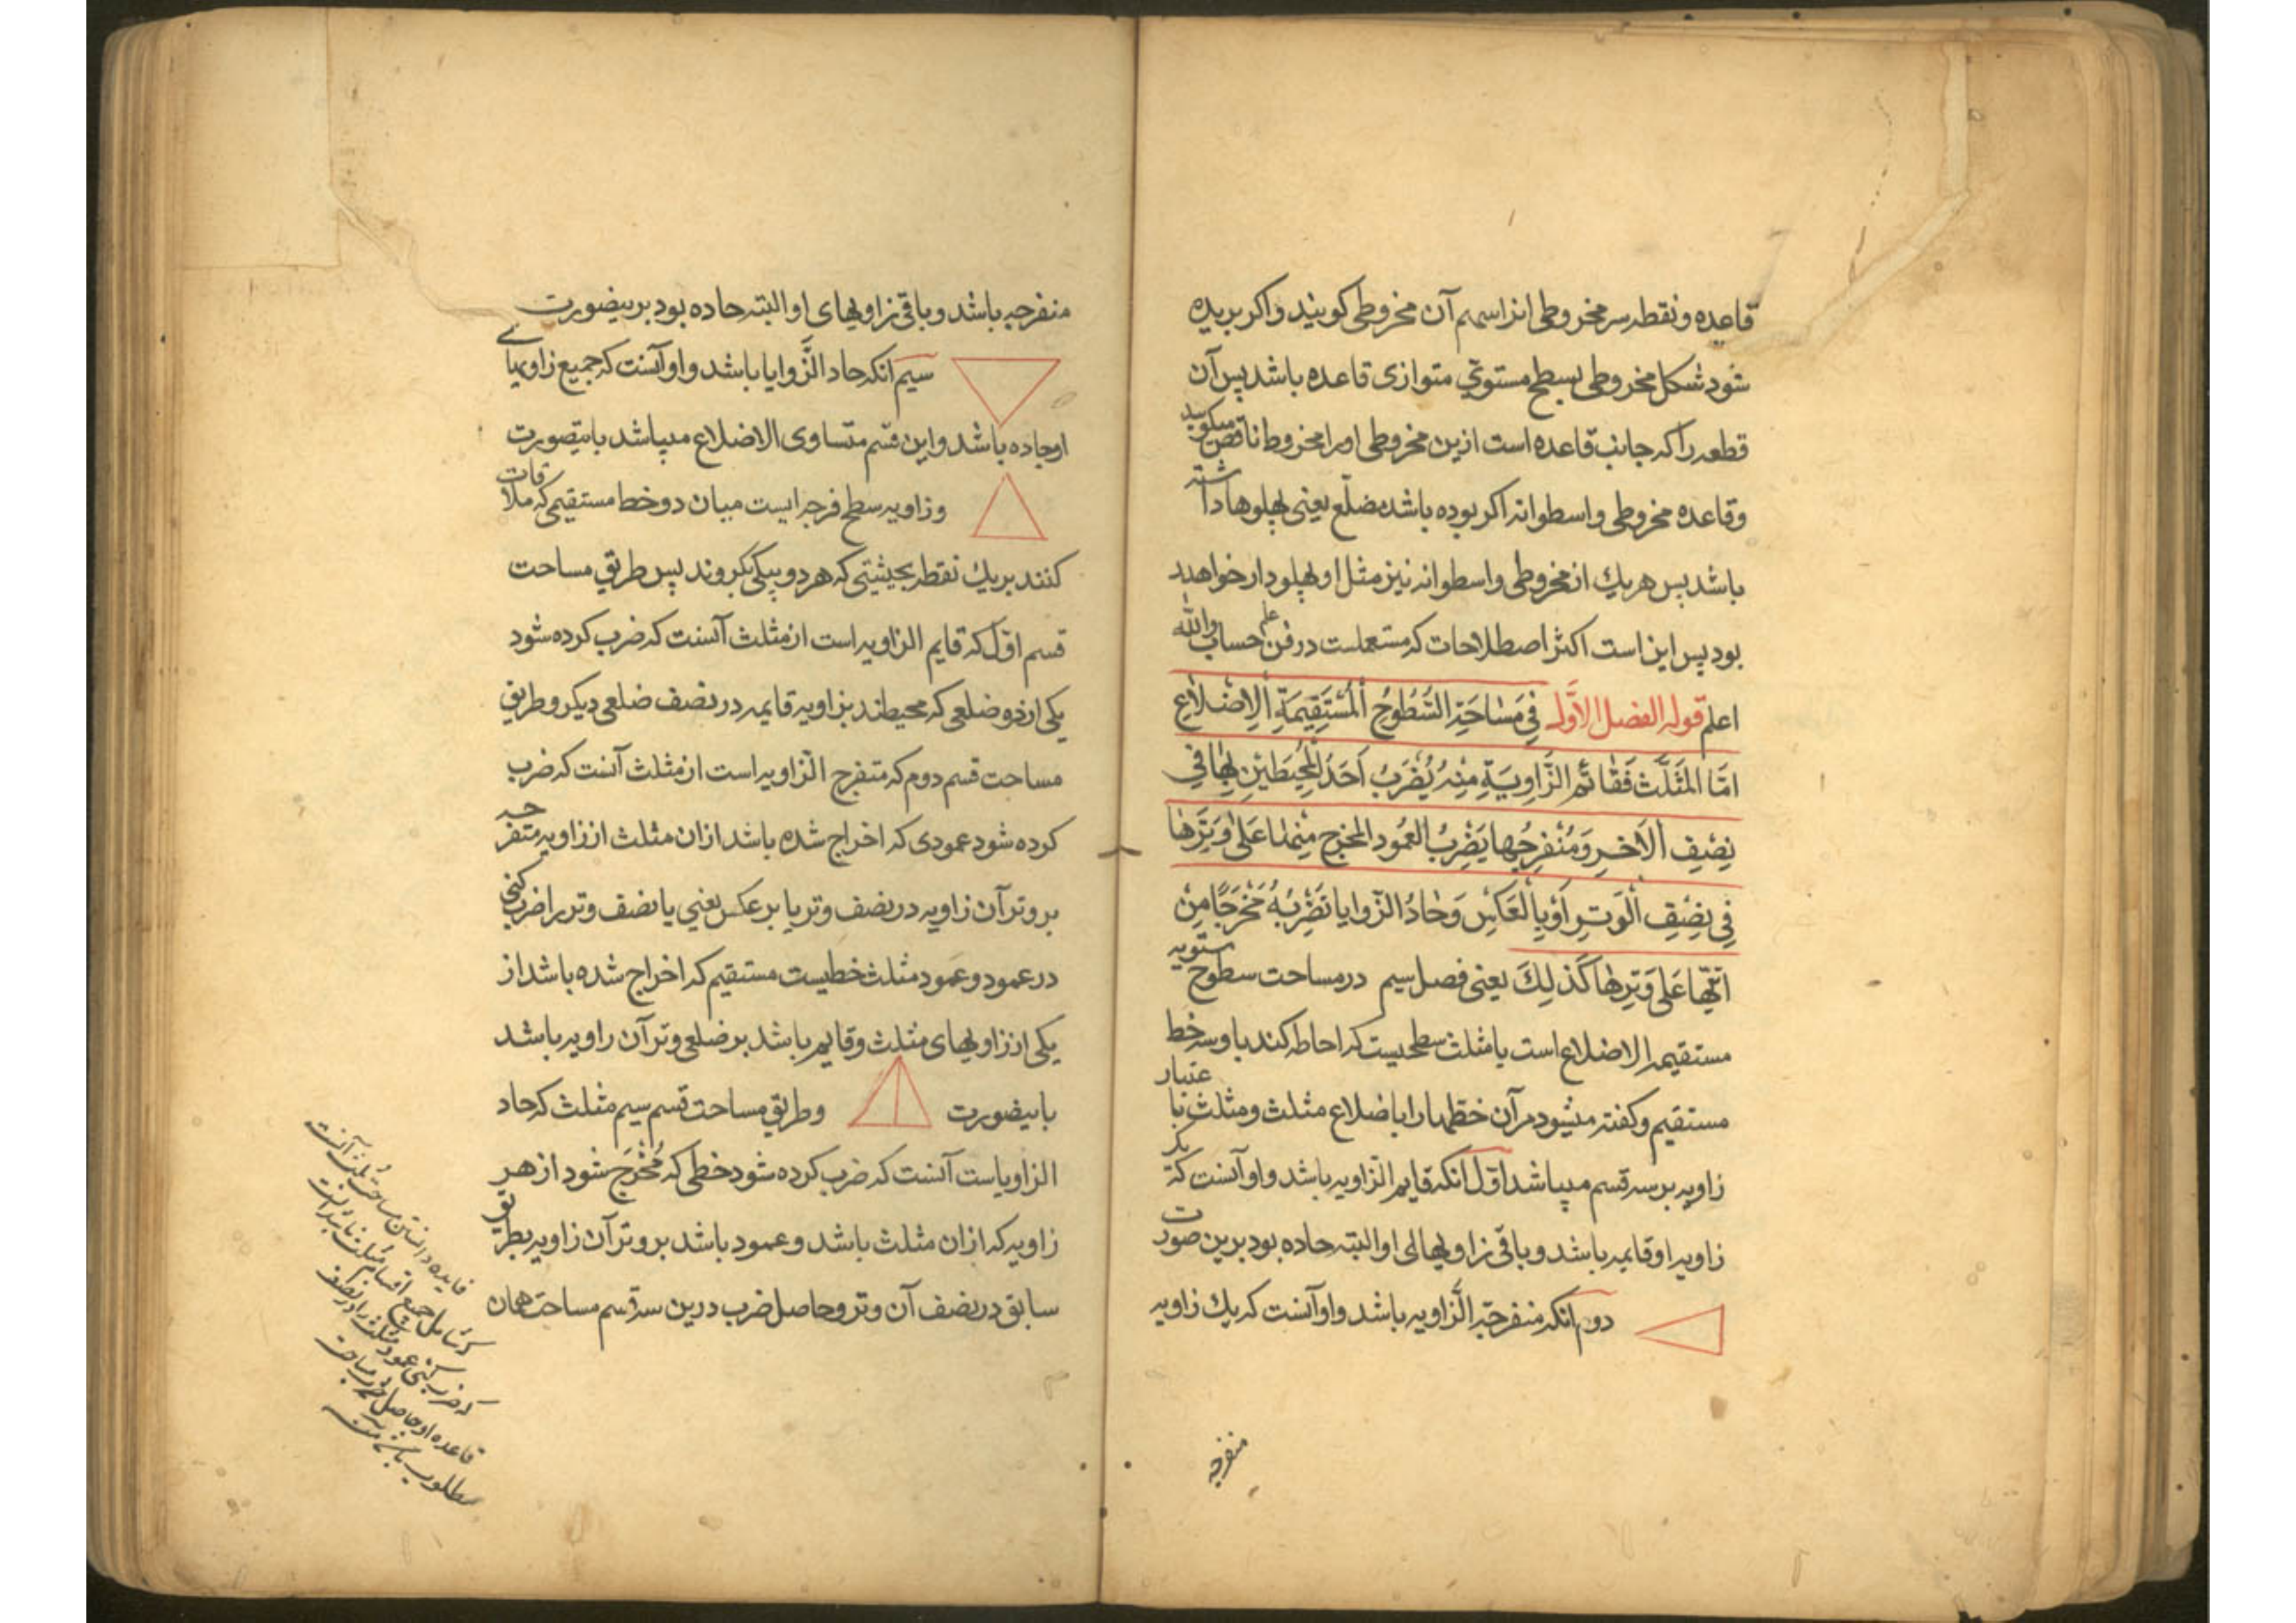 قاعده و نقطه سر مخروطی از اسهم آن مخروطی کویند واکر بریده
شود شکل مخروطی بسطح مستوی متوازی قاعده باشد پس آن
قطعه را که جانب قاعده است ازین مخروطی اورا مخروط ناقص میکویند
وقاعده مخروطی واسطوانه اکر بوده باشد مضلّع یعنی پهلوها داشته
باشد پس هر یك از مخروطی واسطوانه نیز مثل او پهلودار خواهد
بود پس این است اکثر اصطلاحات که مستعملست در فن علم حساب والله
اعلم قوله الفصل الاوّل فِي مَسَاحَةِ السُّطُوحِ الْمُسْتَقِيمَةِ الْاِضْلَاعِ
امَّا المُثَلَّث فَقَائم الزَّاوِيَةِ مِنْهُ يُضْرَبُ اَحَدُ الْمُحِيطَيْنِ بِهَا فِي
نِصْفِ الْآخَرِ وَمُنْفَرِجُهَا يَضْرِبُ الْعَمُود المخرج مِنْهَا عَلَى وَتَرِهَا
فِي نِصْفِ الْوَتَرِ اَوْ بِالْعَكْسِ وَحَادُّ الزّوايا تَضْرِبُهُ مَخْرَجًا مِنْ
ايّهَا عَلَى وَتَرِهَا كَذلِكَ یعنی فصل سیم در مساحت سطوح مستویه
مستقیمه الاضلاع است یا مثلث سطحیست که احاطه کند باو سه خط
مستقیم وکفته میشود مر آن خطها را باضلاع مثلث ومثلث باعتبار
زاویه بر سه قسم میباشد اوّل انکه قایم الزاویه باشد واو آنست که یک
زاویه او قایمه باشد وباقی زاویهای او البته حاده بود برین صورت
دوم انکه منفرجة الزّاویه باشد واو آنست که یك زاویه
منفرجه
منفرجه باشد وباقی زاویهای او البته حاده بود برینصورت
سیم انکه حاد الزّوایا باشد واو آنست که جمیع زاویهای
او حاده باشد واین قسم متساوی الاضلاع میباشد باینصورت
وزاویه سطح فرجه ایست میان دو خط مستقیمی که ملاقات
کنند بر یك نقطه بحیثیتی که هر دو یکی نکروند پس طریق مساحت
قسم اوّل که قایم الزاویه است از مثلث آنست که ضرب کرده شود
یکی از دو ضلعی که محیطند بزاویه قایمه در نصف ضلعی دیکر وطریق
مساحت قسم دوم که منفرج الزاویه است از مثلث آنست که ضرب
کرده شود عمودی که اخراج شده باشد ازان مثلث از زاویه منفرجه
بر وتر آن زاویه در نصف وتر یا بر عکس یعنی یا نصف وتر را ضرب کنی
در عمود وعمود مثلث خطیست مستقیم که اخراج شده باشد از
یکی از زاویهای مثلث وقایم باشد بر ضلعی وتر آن زاویه باشد
باینصورت وطریق مساحت قسم سیم مثلث که حاد
الزاویاست آنست که ضرب کرده شود خطی که مُخْرَج شود از هر
زاویه که ازان مثلث باشد وعمود باشد بر وتر آن زاویه بطریق
سابق در نصف آن وتر وحاصل ضرب درین سه قسم مساحت همان
فایده دانستن مساحت مثلث آنست
که شامل جمیع اقسام مثلث باشد
که ضرب کنی عمود مثلث را در نصف
قاعده او حاصل ضرب مساحت
مطلوب باشد منه